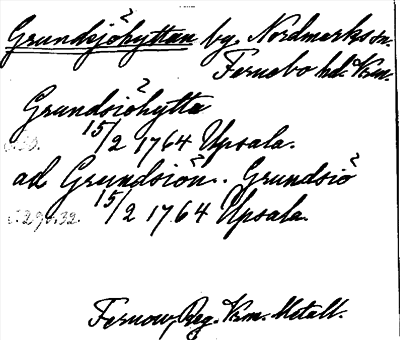 Grundsjöhyttan by. Nordmarks sn.
Fernebo hd. Vrm.
Grundsiöhytta
15/2 1764 Upsala.
ad Grundsiön.. Grundsiö
15/2 1764 Upsala.
Fernow, Reg. Vrm. Metall.